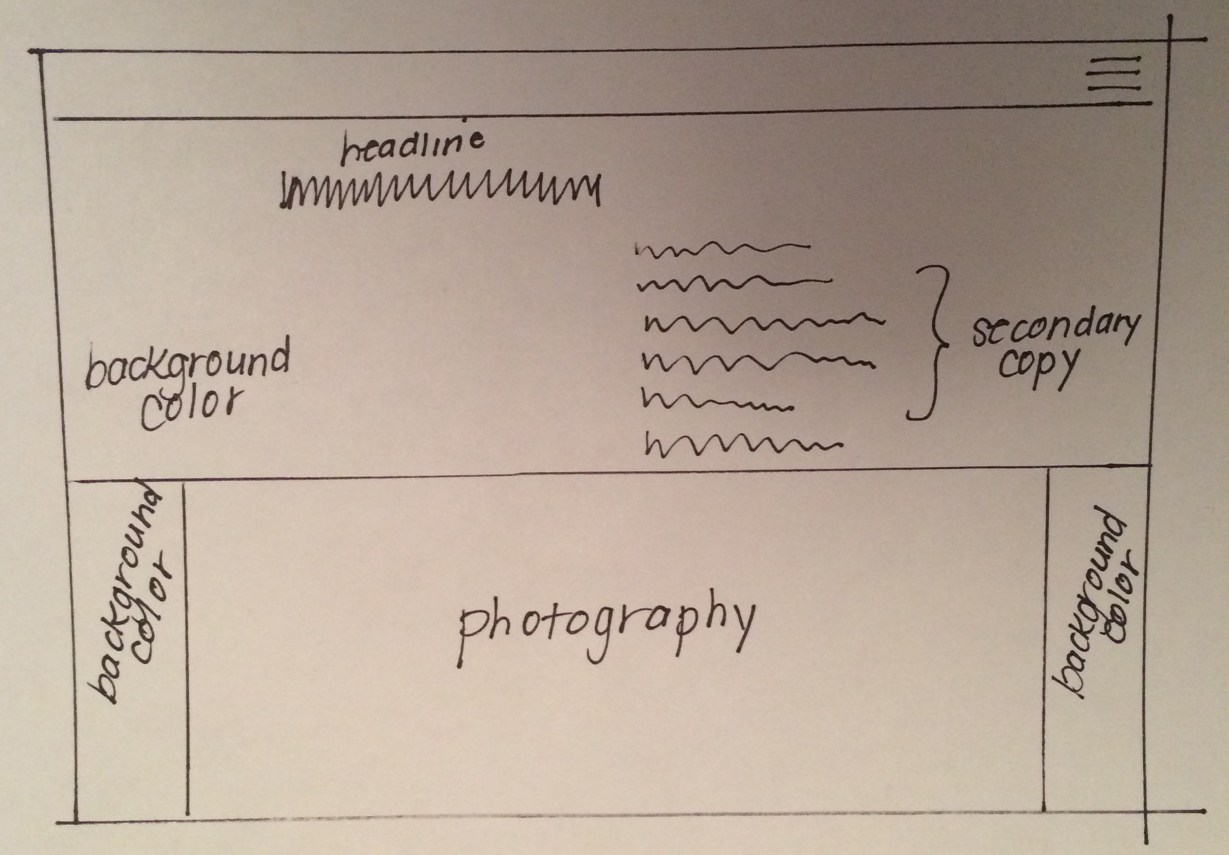 headline
background
color
secondary
copy
background
color
photography
background
color